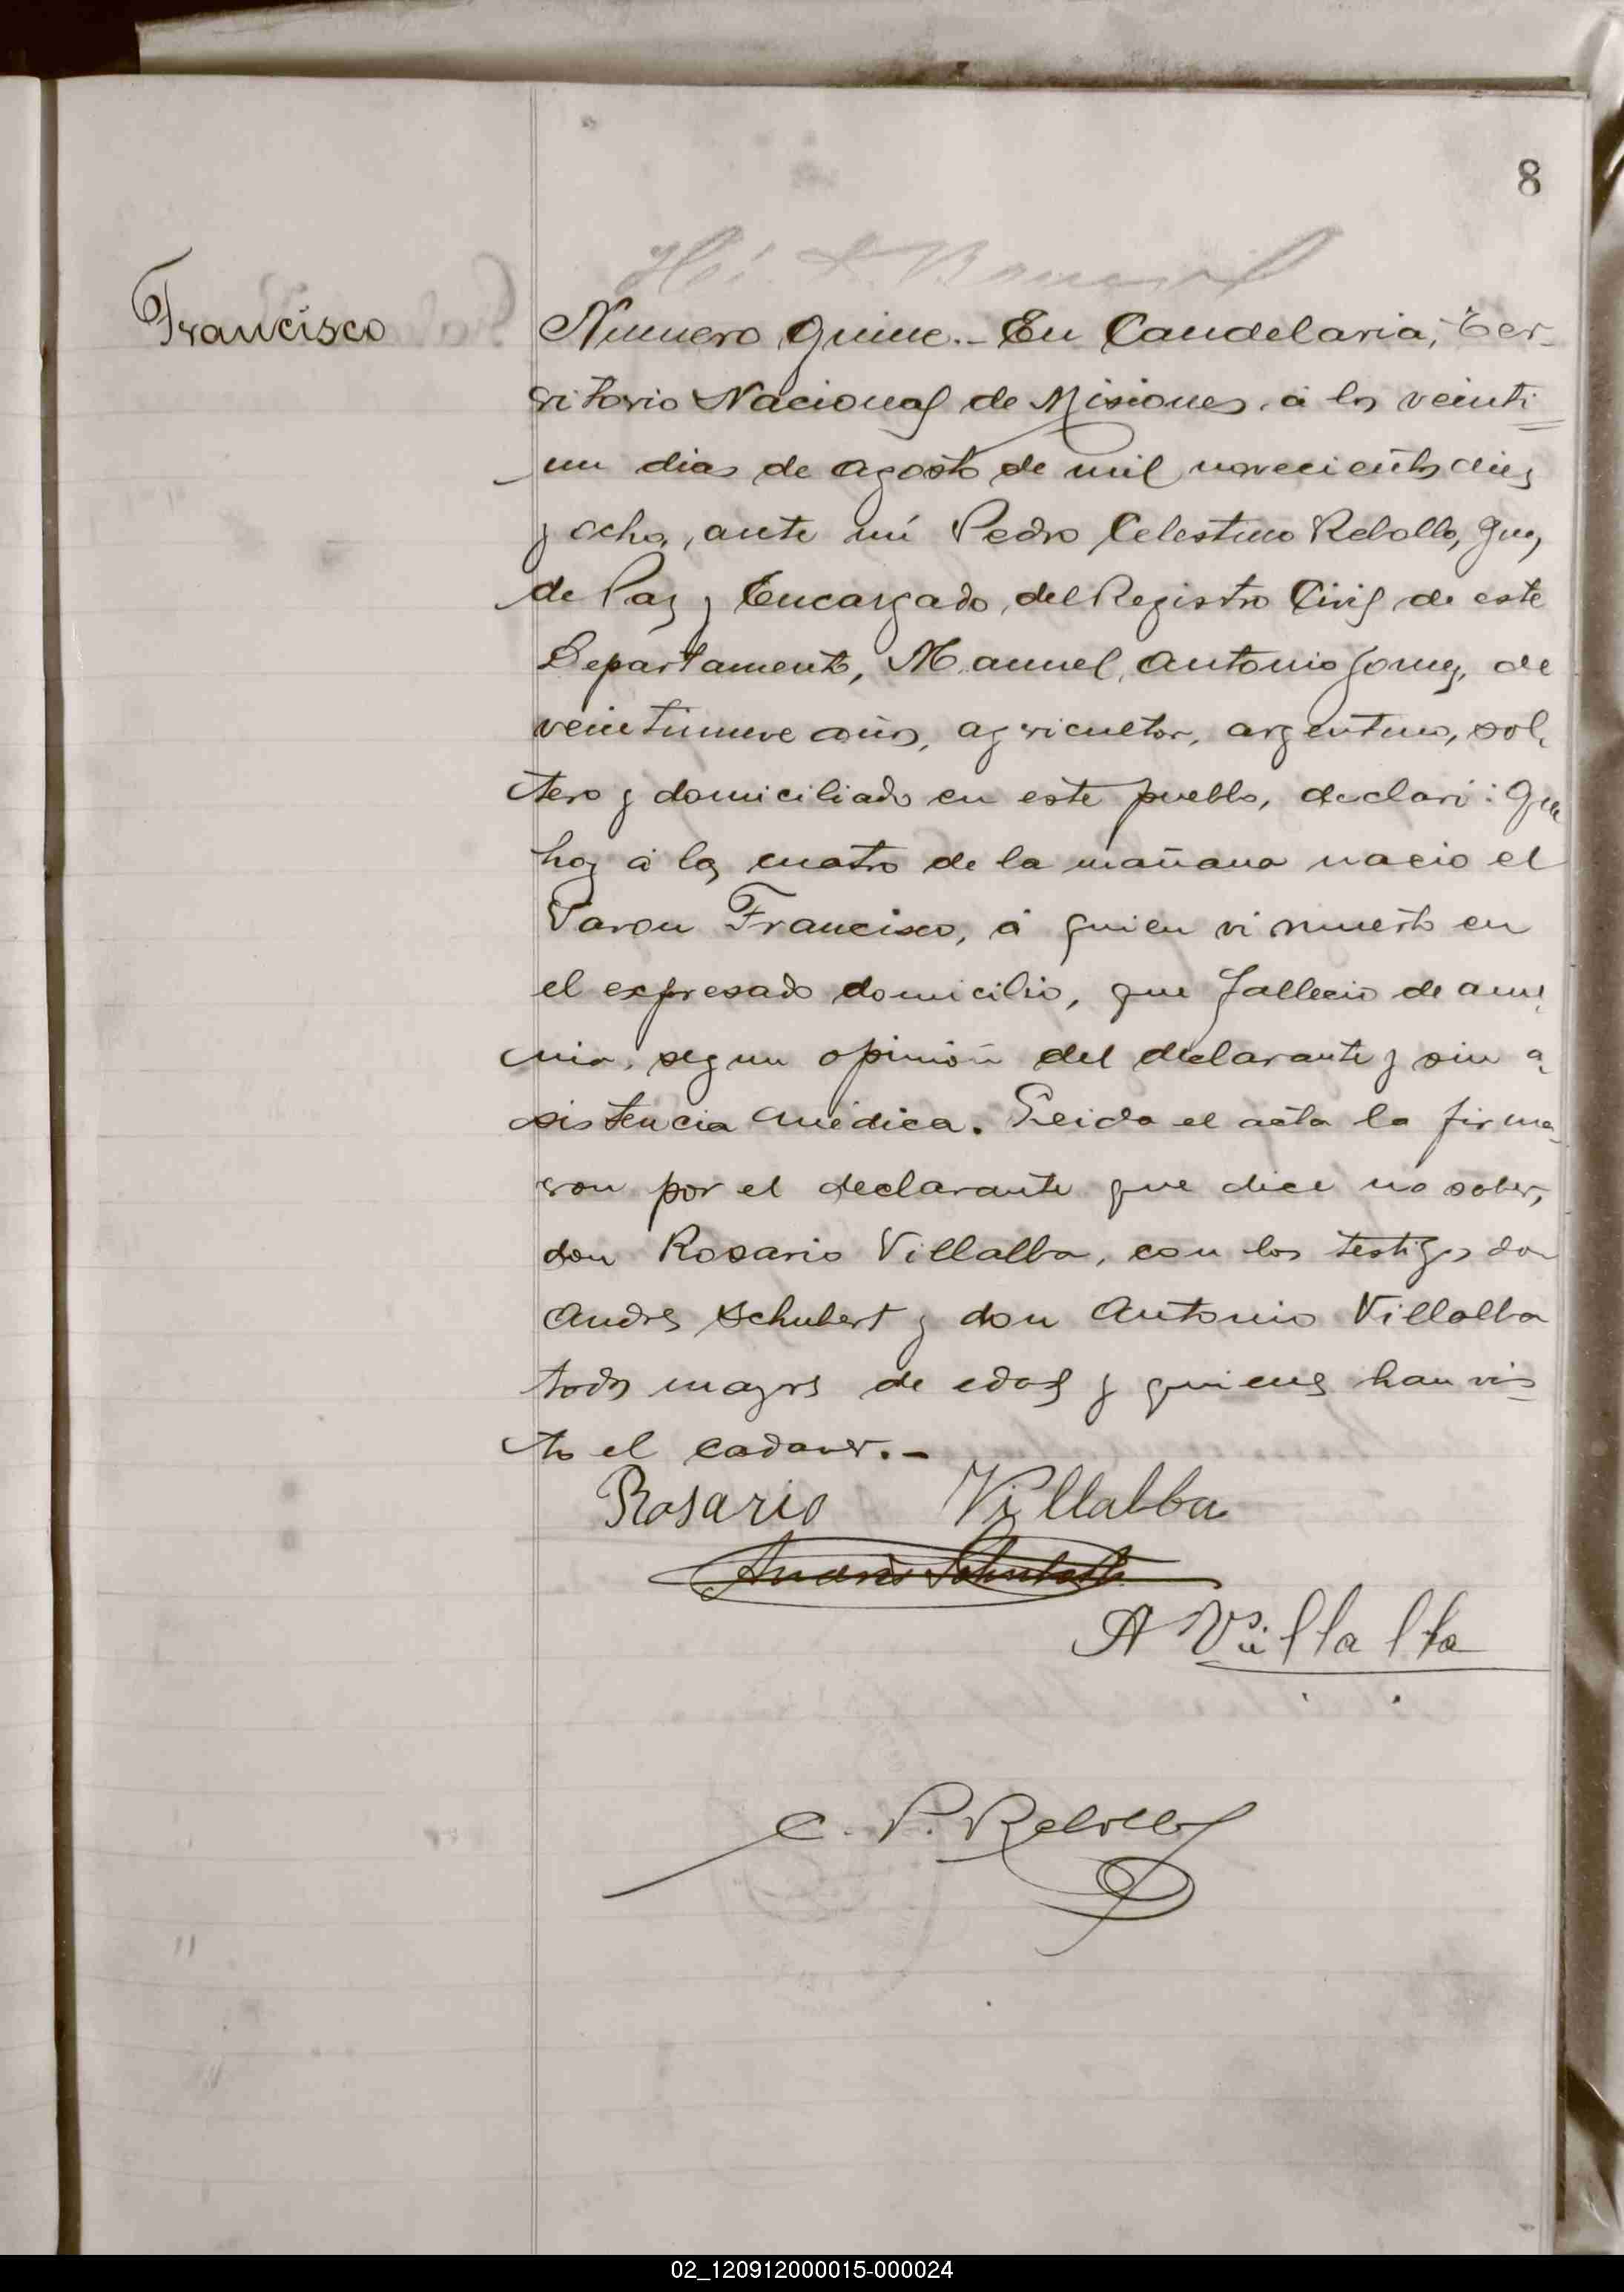 8
Francisco
Numero quince.- En Candelaria, Ter-
ritorio Nacional de Misiones, á los veinti
un dias de agosto de mil novecientos diez
y ocho, ante mí Pedro Celestino Rebollo, Juez
de Paz y Encargado del Registro Civil de este
Departamento, Manuel Antonio Gomez, de
veintinueve años, agricultor, argentino, sol-
tero y domiciliado en este pueblo, declaró: Que
hoy á las cuatro de la mañana nacio el
Varon Francisco, á quien vi muerto en
el expresado domicilio, que fallecio de ane-
mia, segun opinión del declarante y sin a-
sistencia médica. Leida el acta la firma-
ron por el declarante que dice no saber,
don Rosario Villalba, con los testigos don
Andres Schubert y don Antonio Villalba
todos mayores de edad y quienes han vis-
to el cadaver.-
Rosario Villalba
Andrés Schubert
A Villalba
C. P. Rebollo
02_120912000015-000024